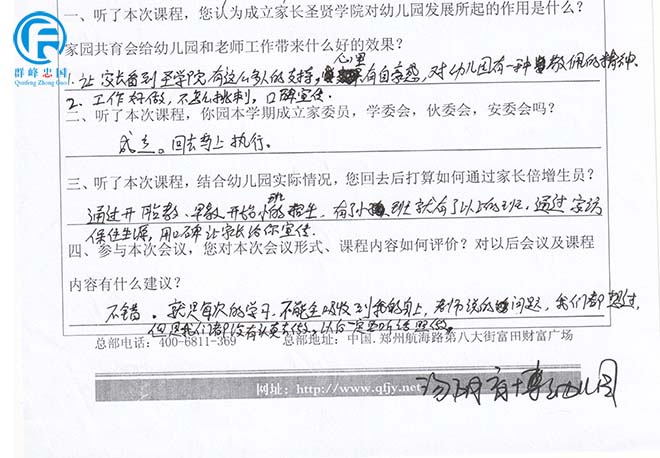 群峰忠国
Qunfeng Zhong Guo
一、听了本次课程，您认为成立家长圣贤学院对幼儿园发展所起的作用是什么？
家园共育会给幼儿园和老师工作带来什么好的效果？
心里
1. 让家长看到圣学院有这么多人的支持，有自豪感，对幼儿园有一种敬佩的精神
2. 工作好做，不怎么挑剔，口碑宣传.
二、听了本次课程，你园本学期成立家委员，学委会，伙委会，安委会吗？
成立。回去马上执行。
三、听了本次课程，结合幼儿园实际情况，您回去后打算如何通过家长倍增生员？
班
通过开 教、早教开始小的招生，有了小 班就有了以上的班，通过家访
保住生源，用口碑让家长给你宣传.
四、参与本次会议，您对本次会议形式、课程内容如何评价？对以后会议及课程
内容有什么建议？
不错。就是每次的学习，不能全吸收到我的身上，老师说的问题，我们都想过，
但是我们都没有认真去做。以后一定要听话照做。
总部电话：400-6811-369 总部地址：中国.郑州航海路第八大街富田财富广场
网址：http://www.qfjy.net
育博幼儿园